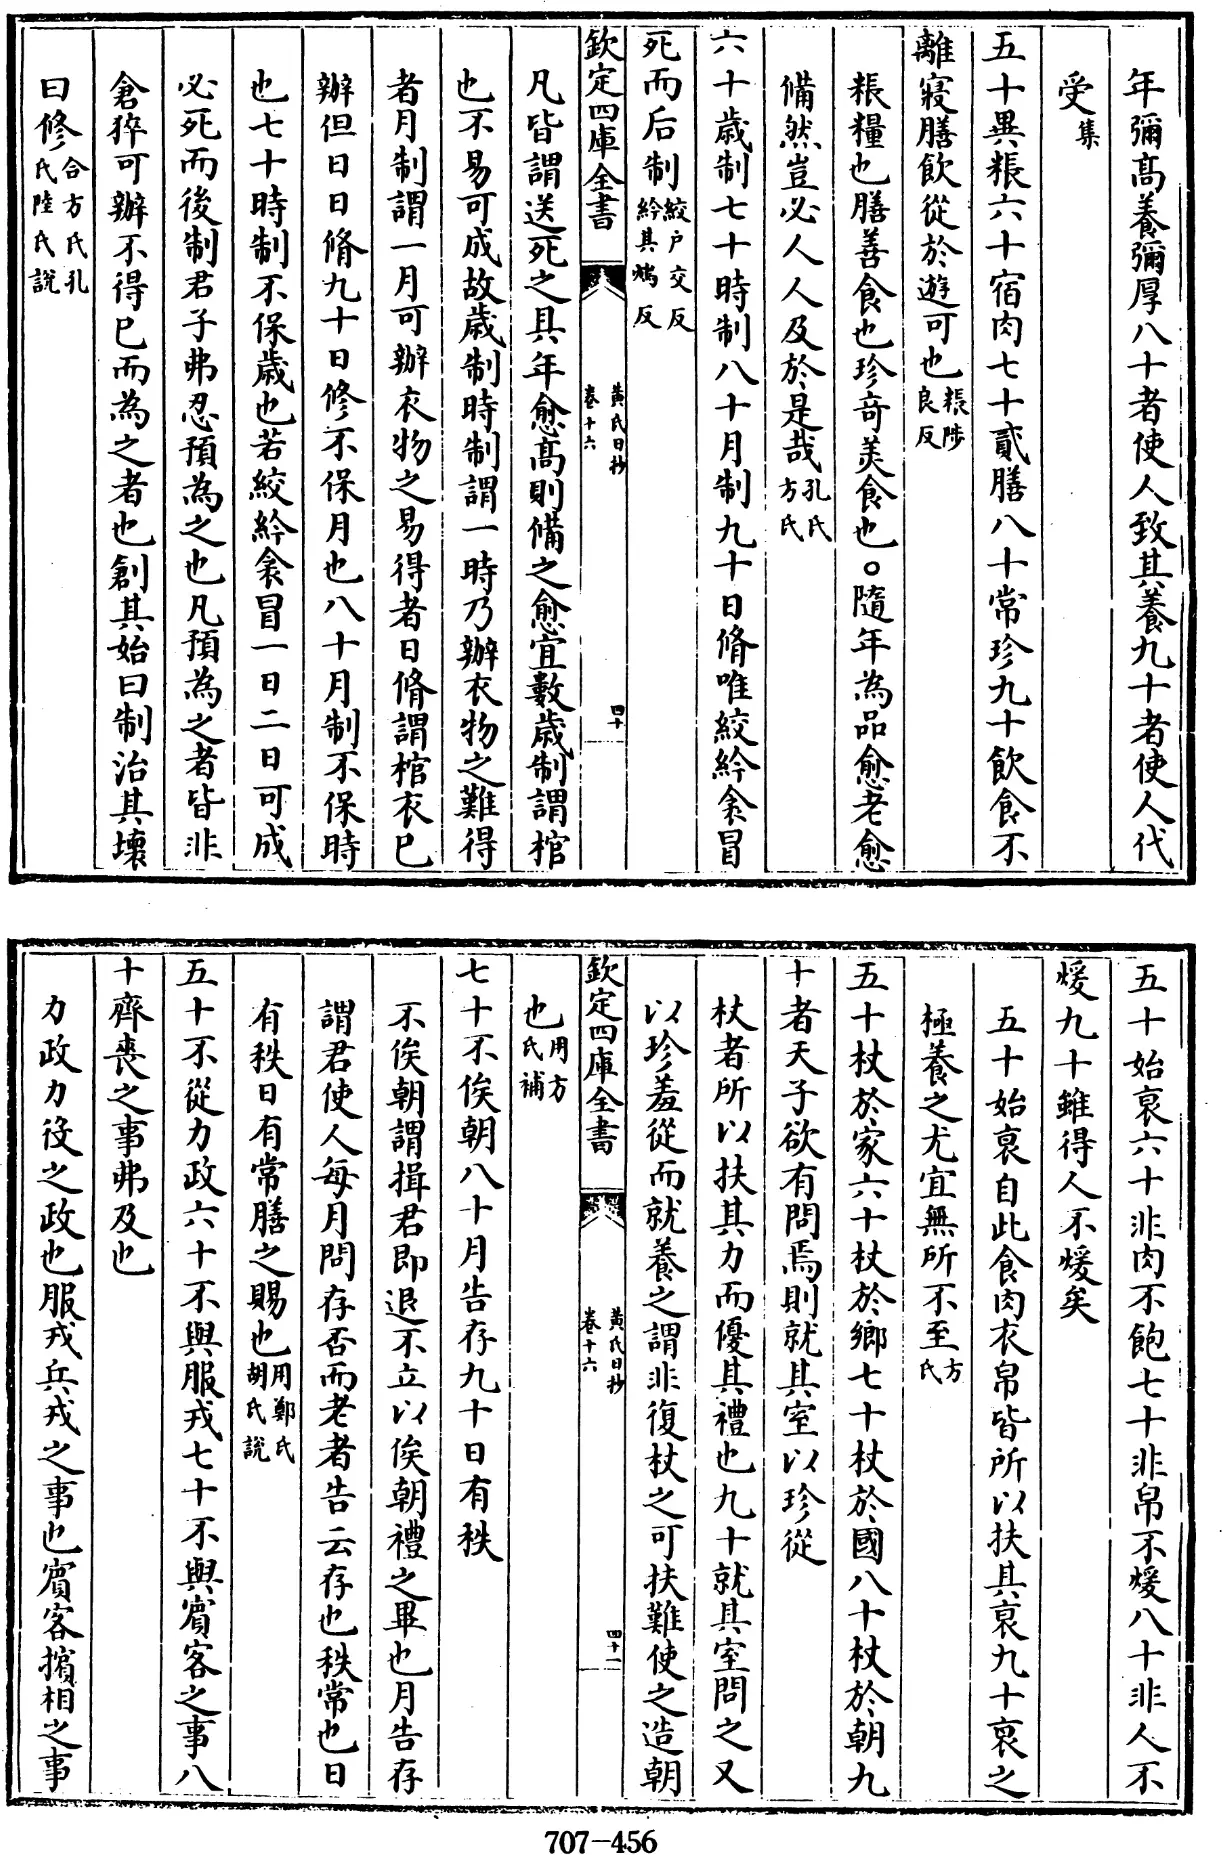 年彌髙養彌厚八十者使人致其養九十者使人代
受集
五十異粻六十宿肉七十貳膳八十常珍九十飲食不
離寢膳飲從於遊可也粻陟良反
粻糧也膳善食也珍奇美食也。隨年為品愈老愈
備然豈必人人及於是哉孔氏方氏
六十歲制七十時制八十月制九十日脩唯絞紟衾冒
死而后制絞户交反紟其鴆反
欽定四庫全書
黃氏日抄
卷十六
四十
凡皆謂送死之具年愈髙則備之愈宜數歲制謂棺
也不易可成故歲制時制謂一時乃辦衣物之難得
者月制謂一月可辦衣物之易得者日脩謂棺衣已
辦但日日脩九十日修不保月也八十月制不保時
也七十時制不保歲也若絞紟衾冒一日二日可成
必死而後制君子弗忍預為之也凡預為之者皆非
倉猝可辦不得已而為之者也創其始曰制治其壞
曰修合方氏孔氏陸氏說
五十始衰六十非肉不飽七十非帛不煖八十非人不
煖九十雖得人不煖矣
五十始衰自此食肉衣帛皆所以扶其衰九十衰之
極養之尤宜無所不至方氏
五十杖於家六十杖於鄉七十杖於國八十杖於朝九
十者天子欲有問焉則就其室以珍從
杖者所以扶其力而優其禮也九十就其室問之又
以珍羞從而就養之謂非復杖之可扶難使之造朝
欽定四庫全書
黃氏日抄
卷十六
四十一
也用方氏補
七十不俟朝八十月告存九十日有秩
不俟朝謂揖君即退不立以俟朝禮之畢也月告存
謂君使人每月問存否而老者告云存也秩常也日
有秩日有常膳之賜也用鄭氏胡氏說
五十不從力政六十不與服戎七十不與賓客之事八
十齊喪之事弗及也
力政力役之政也服戎兵戎之事也賓客擯相之事
707-456